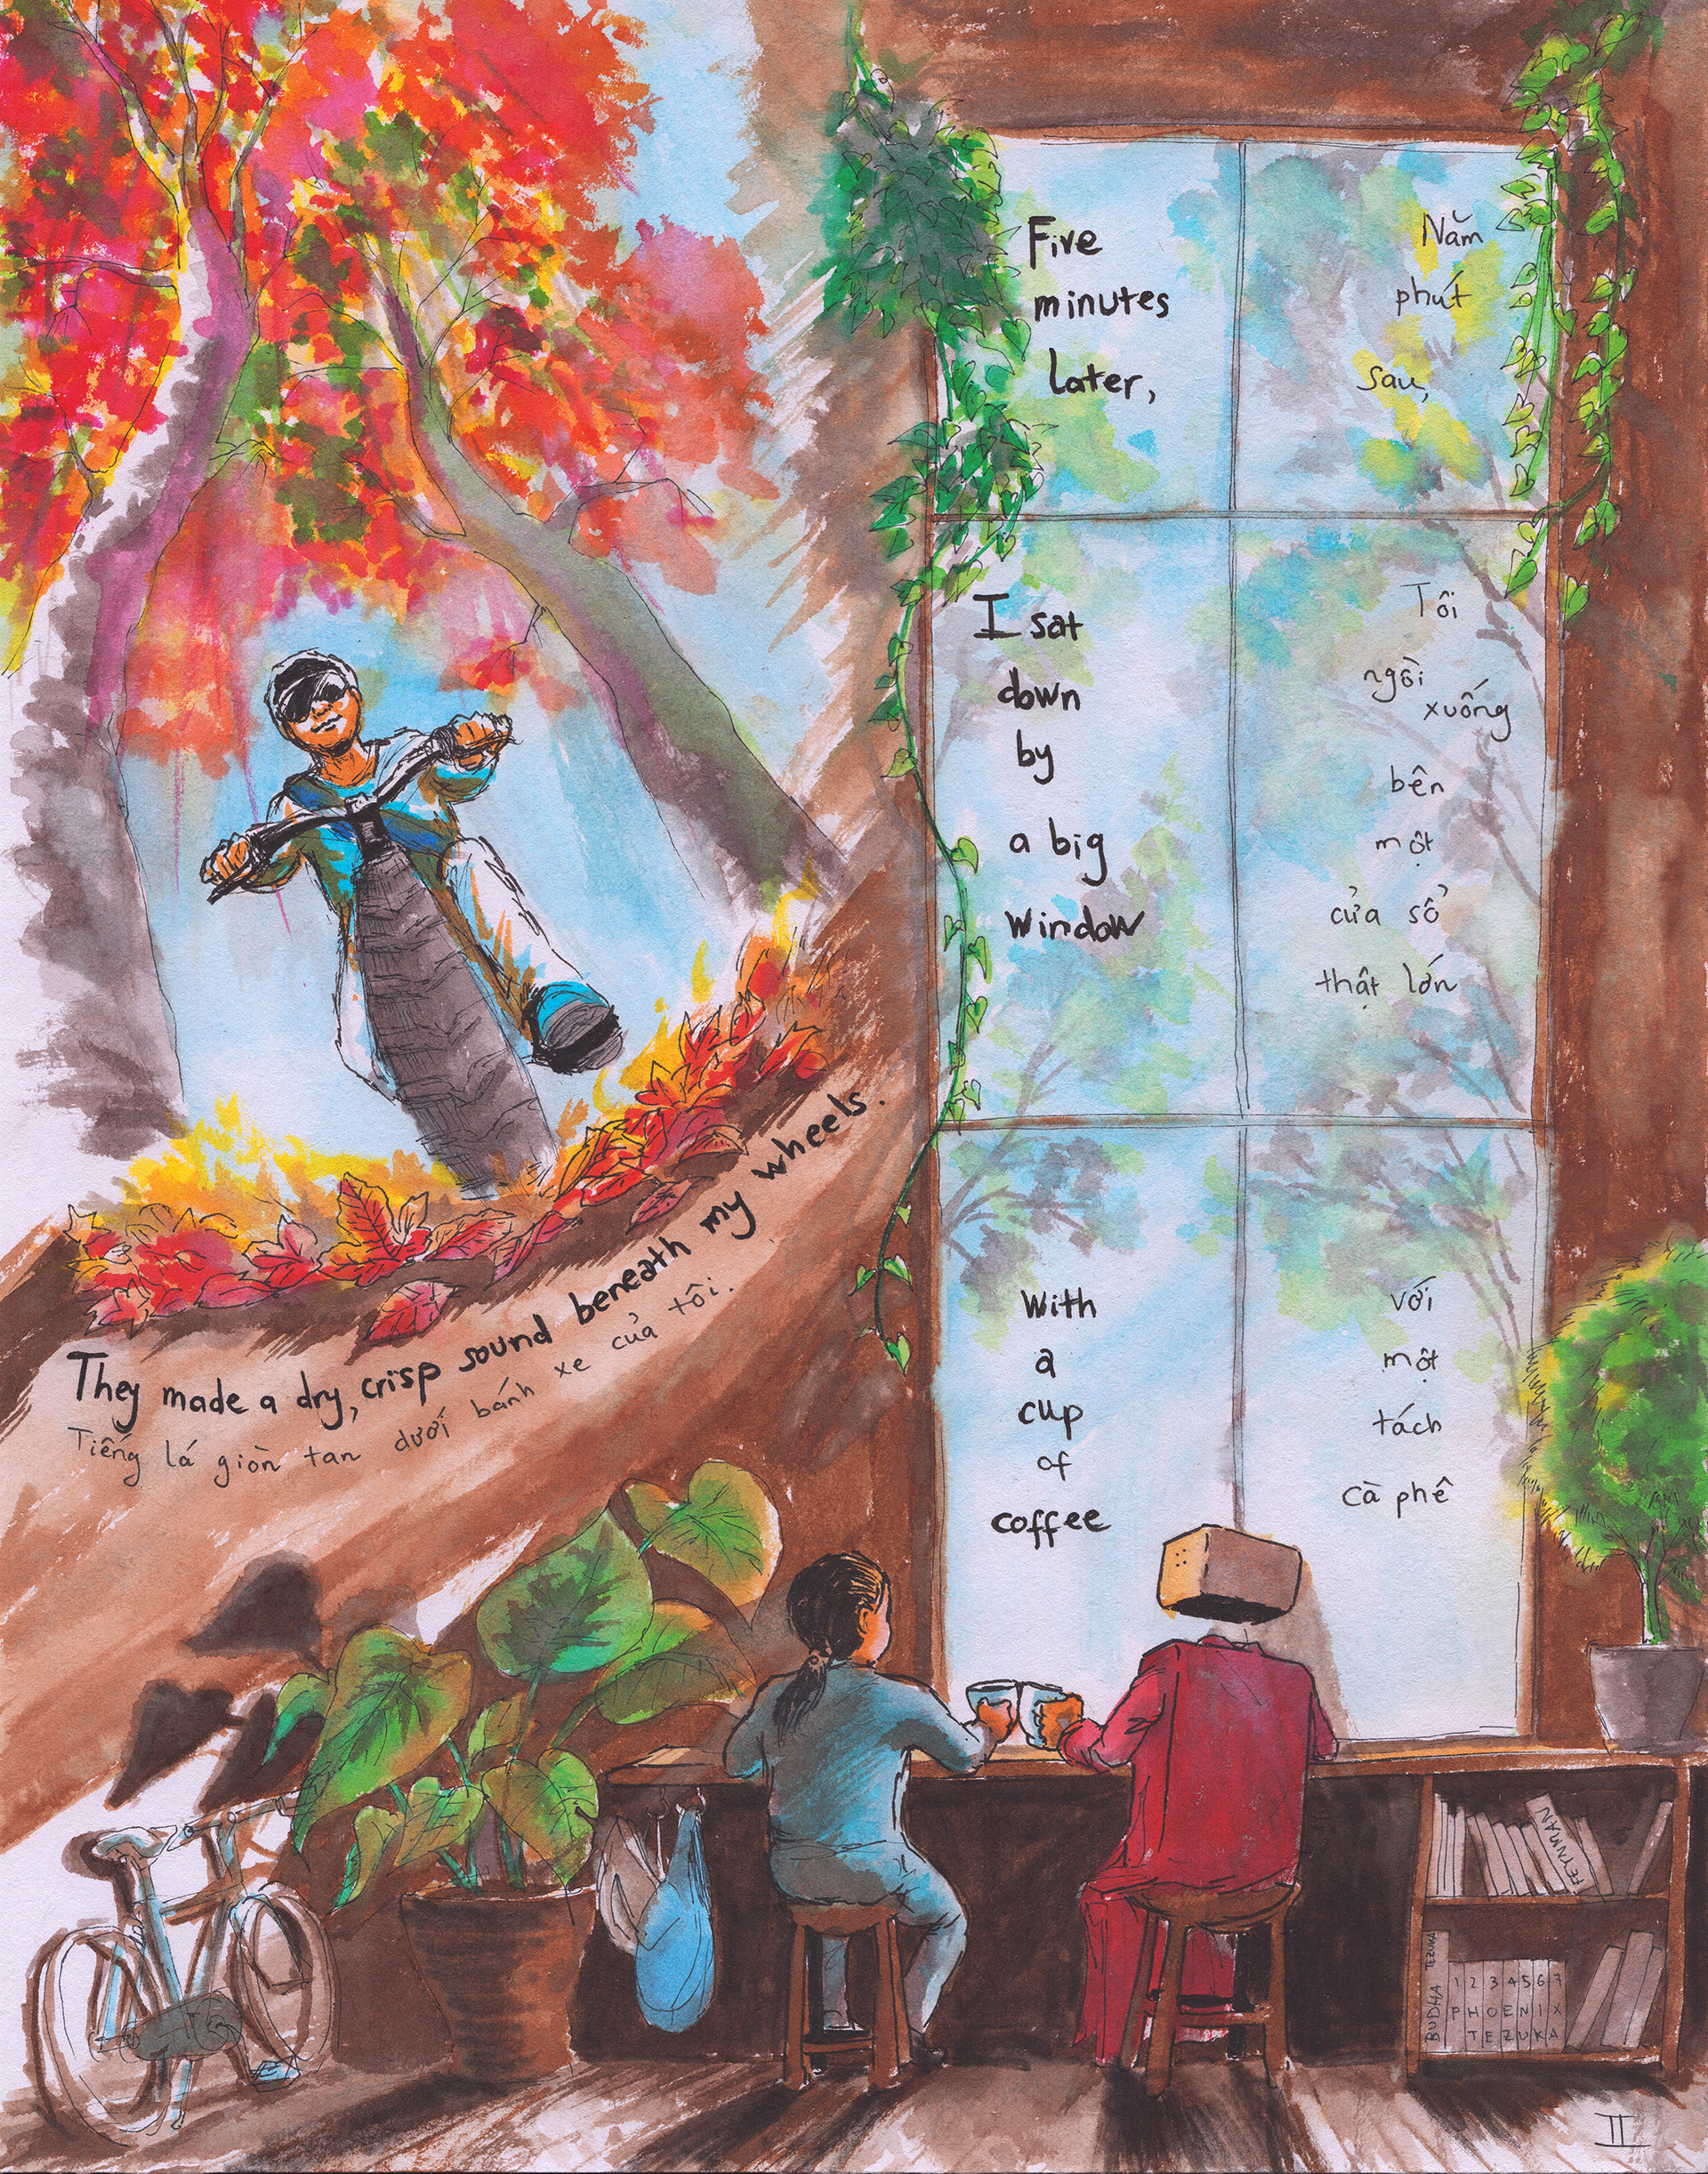 They made a dry, crisp sound beneath my wheels.
Tiếng lá giòn tan dưới bánh xe của tôi.
Five
minutes
later,
Năm
phút
sau,
I sat
down
by
a big
window
Tôi
ngồi
xuống
bên
một
cửa sổ
thật lớn
With
a
cup
of
coffee
với
một
tách
cà phê
FEYNMAN
BUDHA TEZUKA
1 2 3 4 5 6 7
PHOENIX
TEZUKA
II